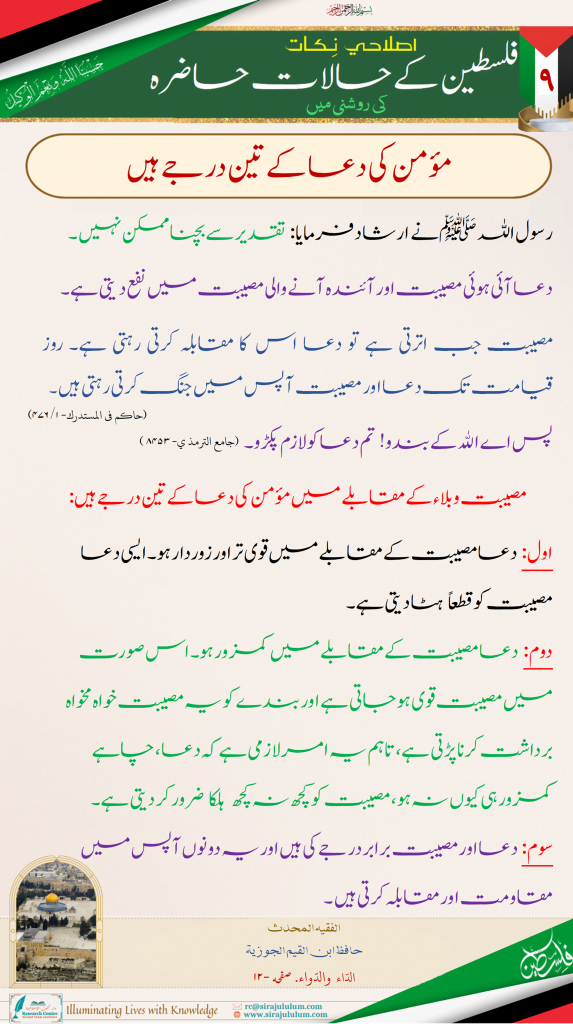 بسم الله الرحمن الرحيم
حَسْبُنَا اللّٰهُ وَنِعْمَ الْوَكِيْل
اصلاحي نِكات
فلسطین کے حالات حاضرہ
کی روشنی میں
۹
مؤمن کی دعا کے تین درجے ہیں
رسول اللہ ﷺ نے ارشاد فرمایا: تقدیر سے بچنا ممکن نہیں۔
دعا آئی ہوئی مصیبت اور آئندہ آنے والی مصیبت میں نفع دیتی ہے۔
مصیبت جب اترتی ہے تو دعا اس کا مقابلہ کرتی رہتی ہے۔ روز
قیامت تک دعا اور مصیبت آپس میں جنگ کرتی رہتی ہیں۔
(حاکم فی المستدرك- ۱/ ۴۷۶)
پس اے اللہ کے بندو! تم دعا کو لازم پکڑو۔ (جامع الترمذي- ۸۴۵۳)
مصیبت وبلاء کے مقابلے میں مؤمن کی دعا کے تین درجے ہیں:
اول: دعا مصیبت کے مقابلے میں قوی تر اور زور دار ہو۔ ایسی دعا
مصیبت کو قطعاً ہٹا دیتی ہے۔
دوم: دعا مصیبت کے مقابلے میں کمزور ہو۔ اس صورت
میں مصیبت قوی ہو جاتی ہے اور بندے کو یہ مصیبت خواہ مخواہ
برداشت کرنا پڑتی ہے، تاہم یہ امر لازمی ہے کہ دعا، چاہے
کمزور ہی کیوں نہ ہو، مصیبت کو کچھ نہ کچھ ہلکا ضرور کر دیتی ہے۔
سوم: دعا اور مصیبت برابر درجے کی ہیں اور یہ دونوں آپس میں
مقاومت اور مقابلہ کرتی ہیں۔
الفقيه المحدث
حافظ ابن القيم الجوزية
الدّاء والدّواء، صفحہ -۱۲
فلسطين
Research Centre
Illuminating Lives with Knowledge
rc@sirajululum.com
www.sirajululum.com